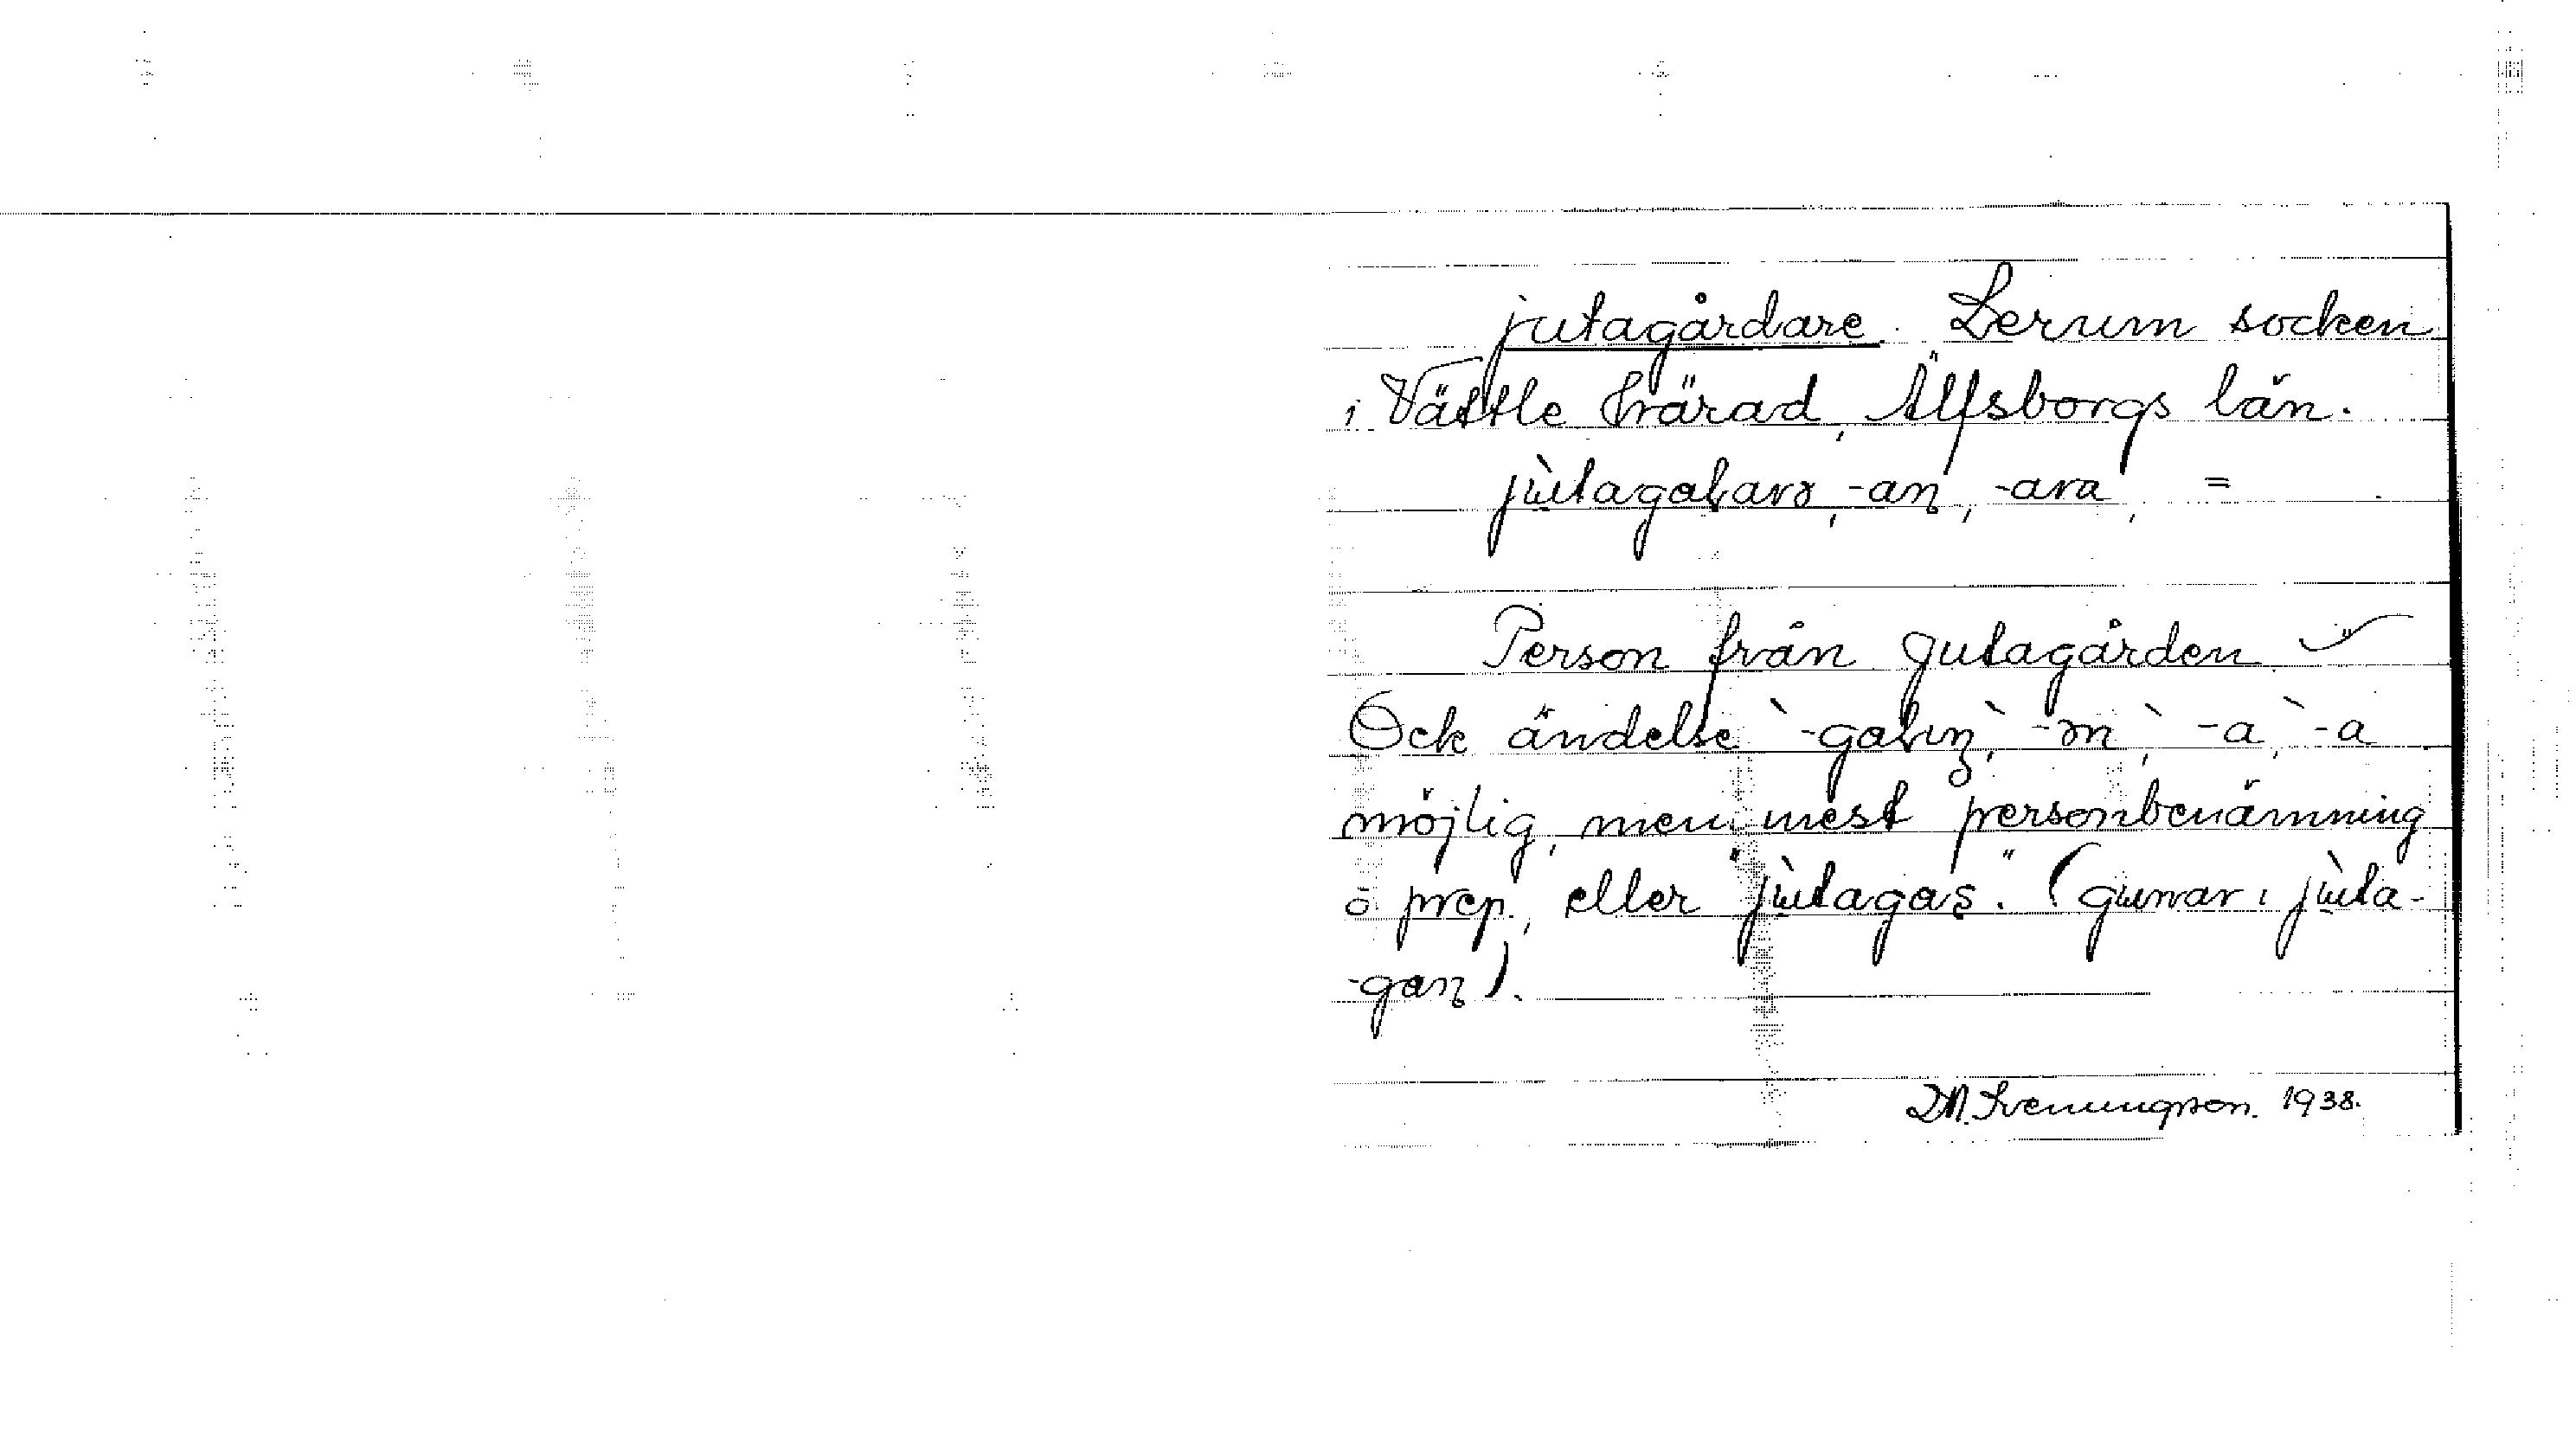 jutagårdare. Lerum socken
i Vättle härad, Älfsborgs län.
-an, -ara, =
Person från Jutagården.
Ock ändelse -a, -a
möjlig, men mest personbenämning
o. prep., eller "jùtagas." (gunnar i jùta-
-gan).
1938.